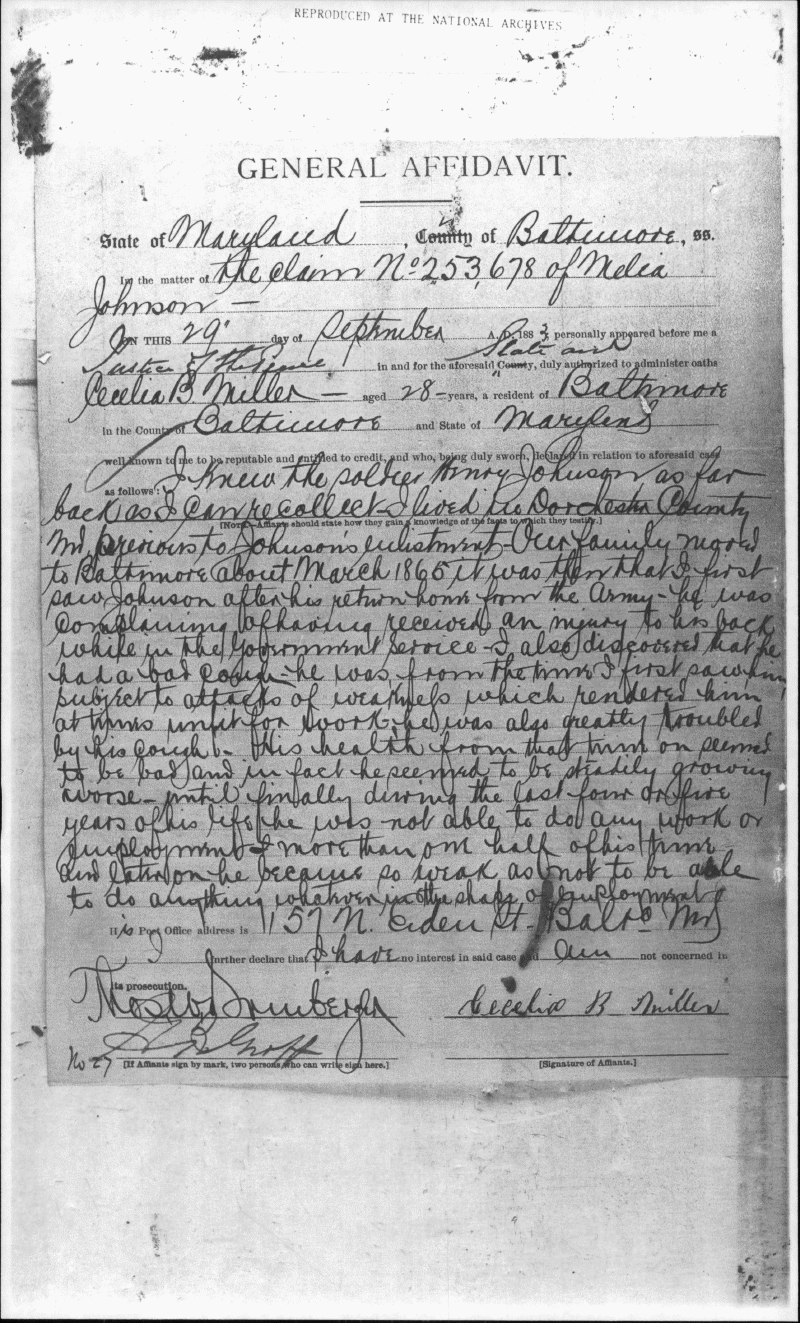 REPRODUCED AT THE NATIONAL ARCHIVES
GENERAL AFFIDAVIT.
State of Maryland, County of Baltimore, ss.
In the matter of the claim No 253,678 of Melia
Johnson —
ON THIS 29" day of September A. D. 1883, personally appeared before me a
Justice of the Peace in and for the aforesaid State and County, duly authorized to administer oaths
Cecelia B Miller — aged 28 — years, a resident of Baltimore
in the County of Baltimore and State of Maryland
well known to me to be reputable and entitled to credit, and who, being duly sworn, declared in relation to aforesaid case
as follows: I knew the soldier Henry Johnson as far
back as I can recollect – I lived in Dorchester County
[NOTE.—Affiants should state how they gain a knowledge of the facts to which they testify.]
Md, previous to Johnson's enlistment – Our family moved
to Baltimore about March 1865 it was then that I first
saw Johnson after his return home from the Army – he was
complaining of having received an injury to his back
while in the Government service – I also discovered that he
had a bad cough – he was from the time I first saw him
subject to attacks of weakness which rendered him
at times unfit for work, he was also greatly troubled
by his cough. – His health from that time on seemed
to be bad, and in fact he seemed to be steadily growing
worse – until finally during the last four or five
years of his life he was not able to do any work or
employment more than one half of his time
and later on he became so weak as not to be able
to do anything whatever in the shape of employment
His Post Office address is 1157 N. Eden St. Balto Md
I further declare that I have no interest in said case and am not concerned in
its prosecution.
Cecelia B Miller
No 27 [If Affiants sign by mark, two persons who can write sign here.] [Signature of Affiants.]